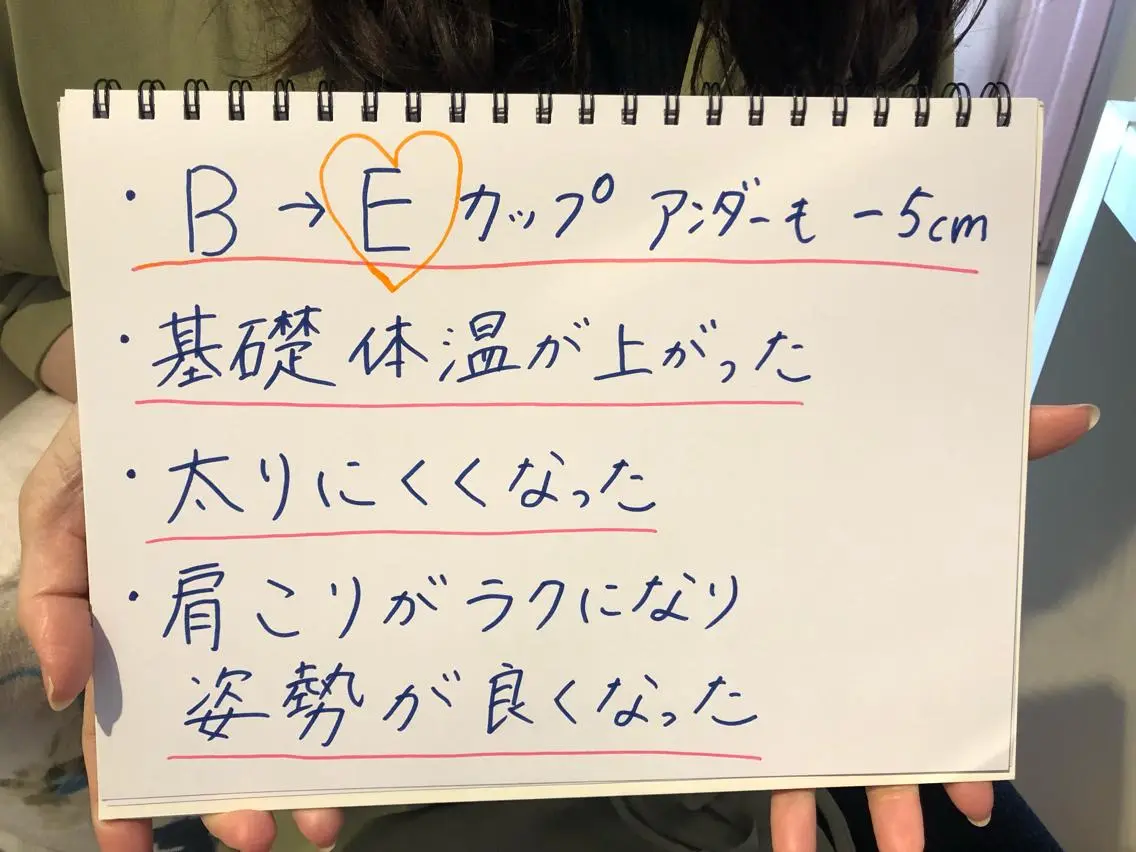 ・B→Eカップ アンダーも −5cm
・基礎体温が上がった
・太りにくくなった
・肩こりがラクになり
姿勢が良くなった